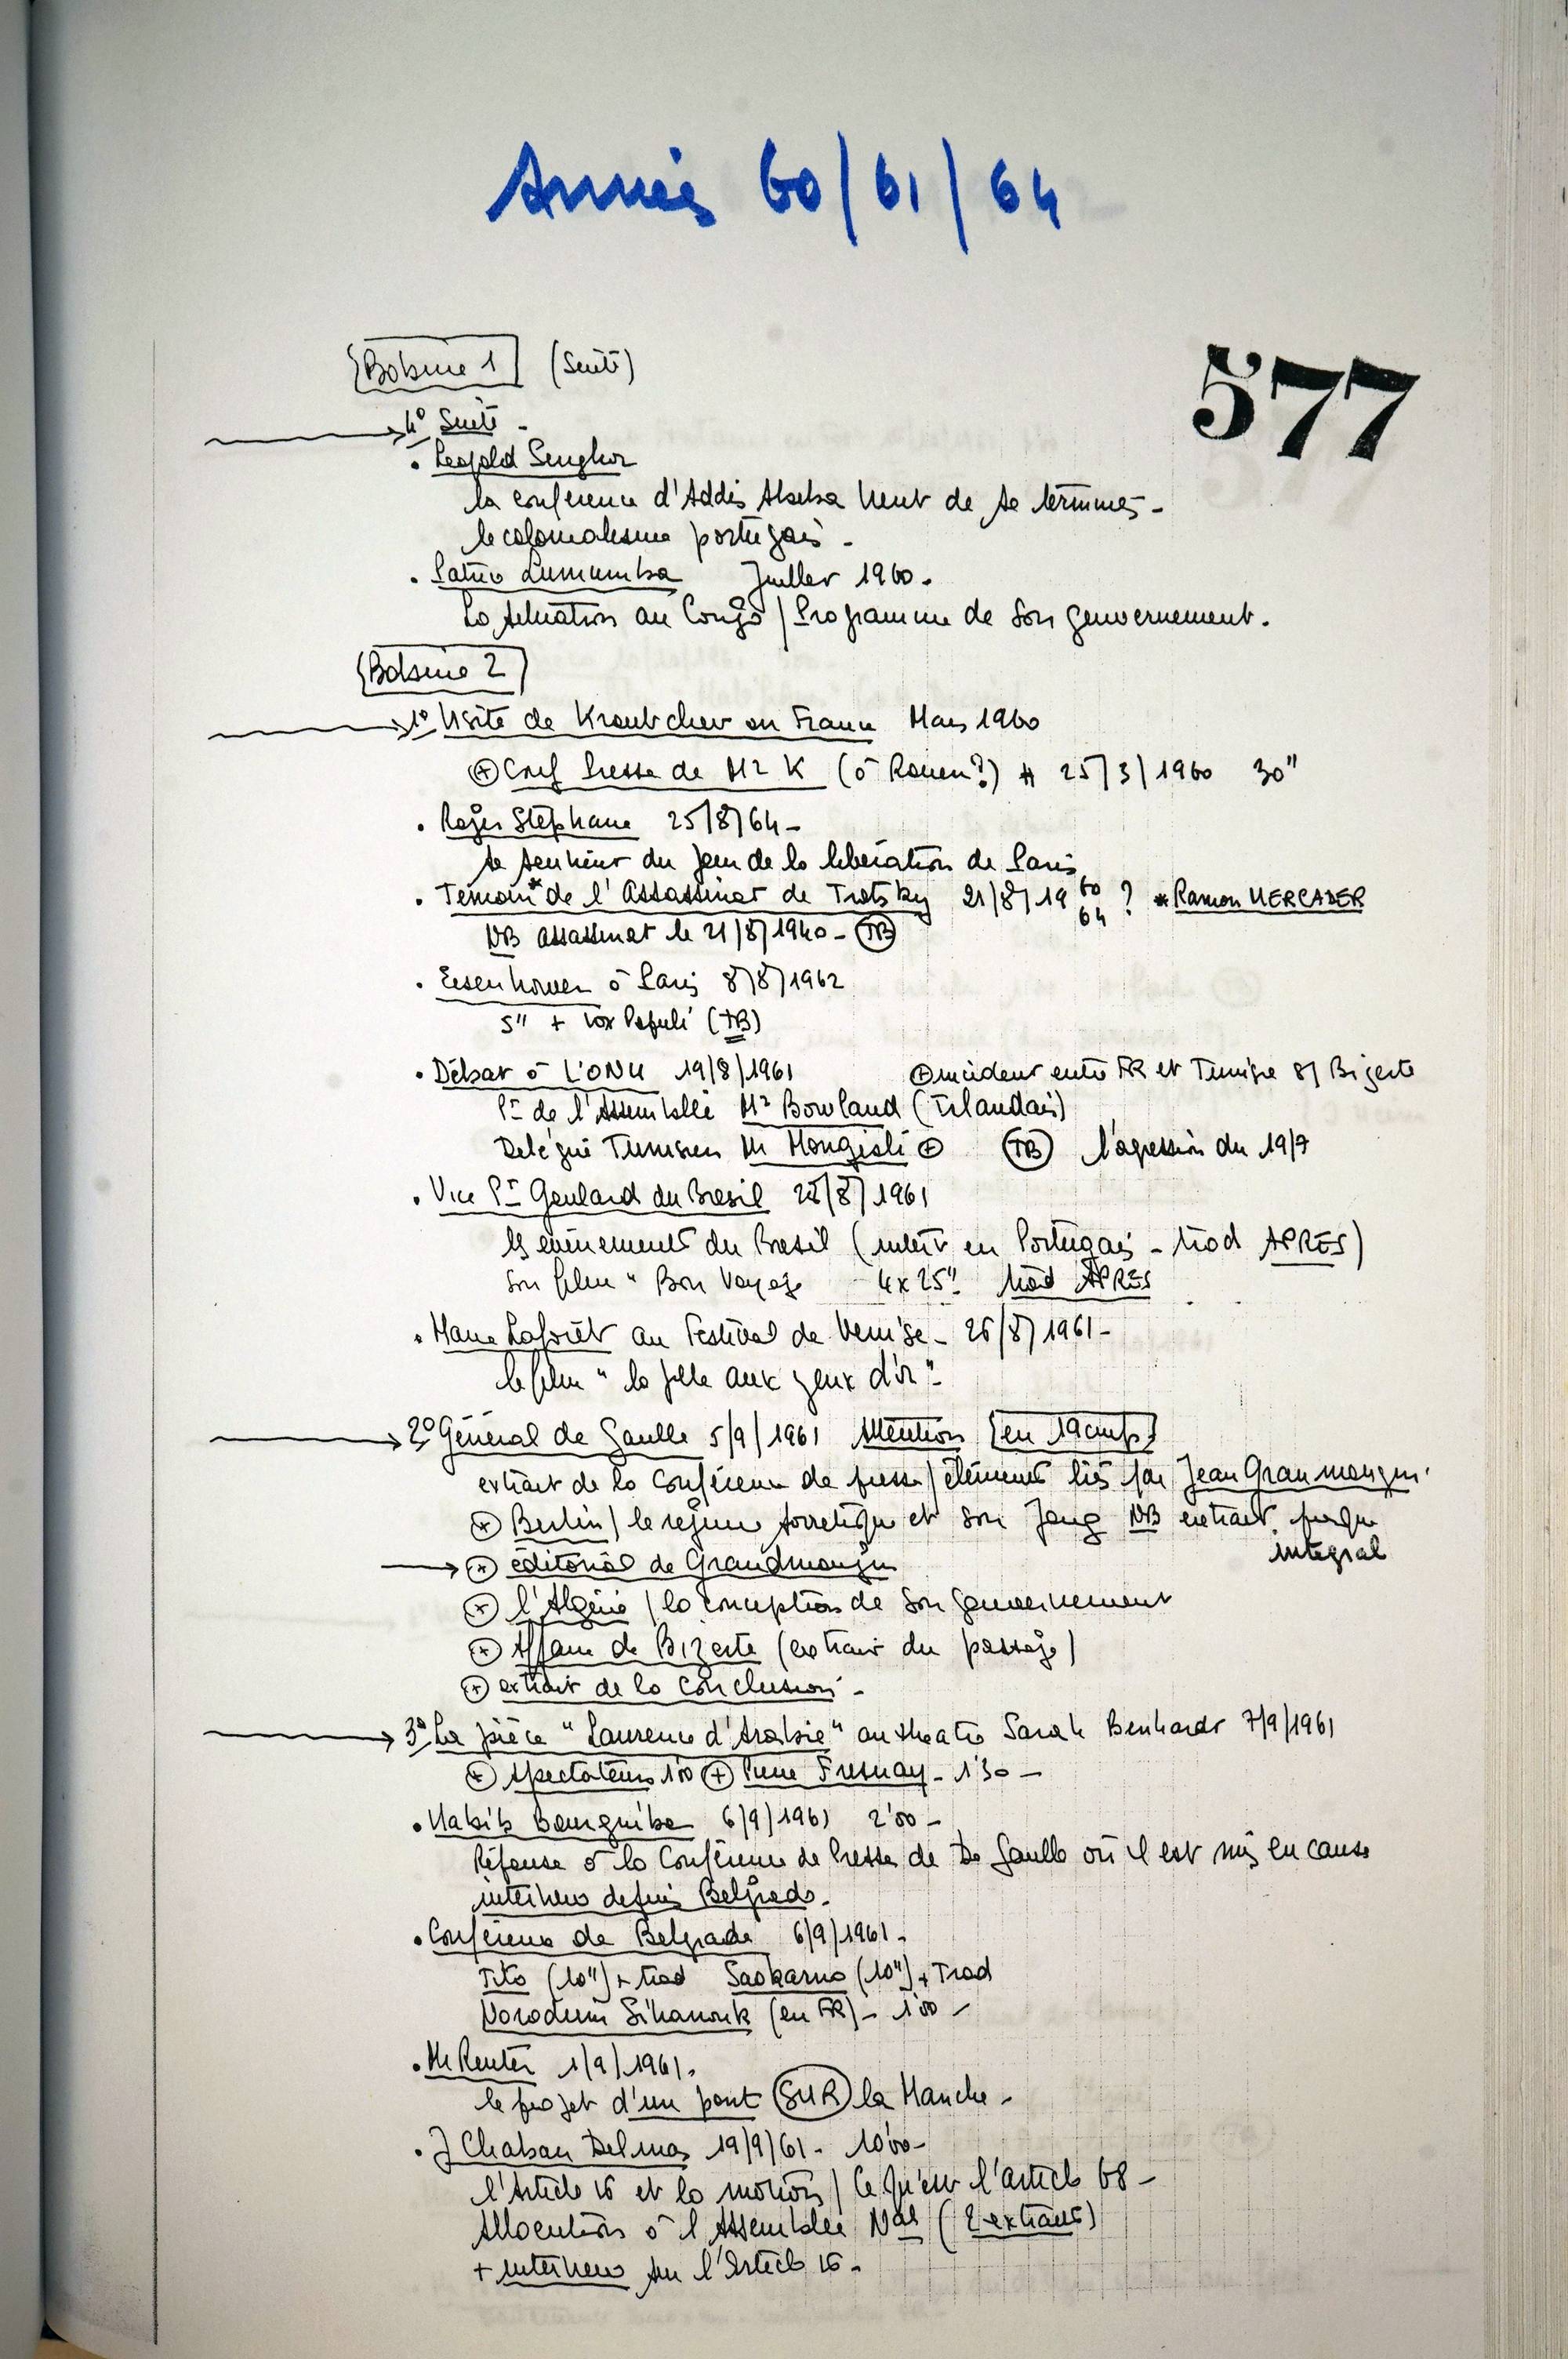 Années 60/61/64
577
Bobine 1 (Suite)
4° Suite -
. Leopold Senghor
la conference d'Addis Abeba vient de se terminer -
le colonialisme portugais -
. Patrice Lumumba Juillet 1960 -
La situation au Congo / Programme de son gouvernement.
Bobine 2
1° Visite de Kroutchev en France Mars 1960
+ Conf Presse de Mr K (à Rouen?) # 25/3/1960 30"
. Roger Stephane 25/8/64 -
se souvient du jour de la libération de Paris
. Temoin* de l'Assassinat de Trotsky 21/8/19 60 64 ? * Ramon MERCADER
NB assassinat le 21/8/1940 - TB
. Eisenhower à Paris 8/8/1962
5" + Vox Populi (TB)
. Débat à L'ONU 19/8/1961 + incident entre FR et Tunisie s/ Bizerte
Pt de l'Assemblée Mr Bowland (Irlandais)
Delégué Tunisien M Mongisli + TB l'agression du 19/7
. Vice Pt Goulard du Bresil 28/8/1961
les évènements du Bresil (interv en Portugais - trad APRES)
Son film " Bon Voyage 4x25" trad APRES
. Marie Laforêt au Festival de Venise - 26/8/1961 -
le film " la fille aux yeux d'or" -
2° Général de Gaulle 5/9/1961 Attention en 19cm/s
extrait de la Conférence de presse / éléments liés par Jean Granmougin.
+ Berlin / le régime sovietique et son joug NB extrait presque
integral
+ éditorial de Grandmougin
+ l'Algérie / la conception de son gouvernement
+ Affaire de Bizerte (extrait du passage)
+ extrait de la conclusion -
3° La pièce " Laurence d'Arabie" au theatre Sarah Benhardt 7/9/1961
+ Spectateurs 1'00 + Pierre Fresnay - 1'30 -
. Habib Bourguiba 6/9/1961 2'00 -
Réponse à la Conférence de Presse de De Gaulle où il est mis en cause
interview depuis Belgrade.
. Conférence de Belgrade 6/9/1961 -
Tito (10") + trad Saokarno (10") + Trad
Norodum Sihanouk (en FR) - 1'00 -
. M Reuter 1/9/1961.
le projet d'un pont SUR la Manche -
. J Chaban Delmas 19/9/61 - 10'00 -
l'Article 16 et la motion / Ce qu'est l'article 68 -
Allocution à l'Assemblée Nale (2 extraits)
+ interview sur l'Article 16 -